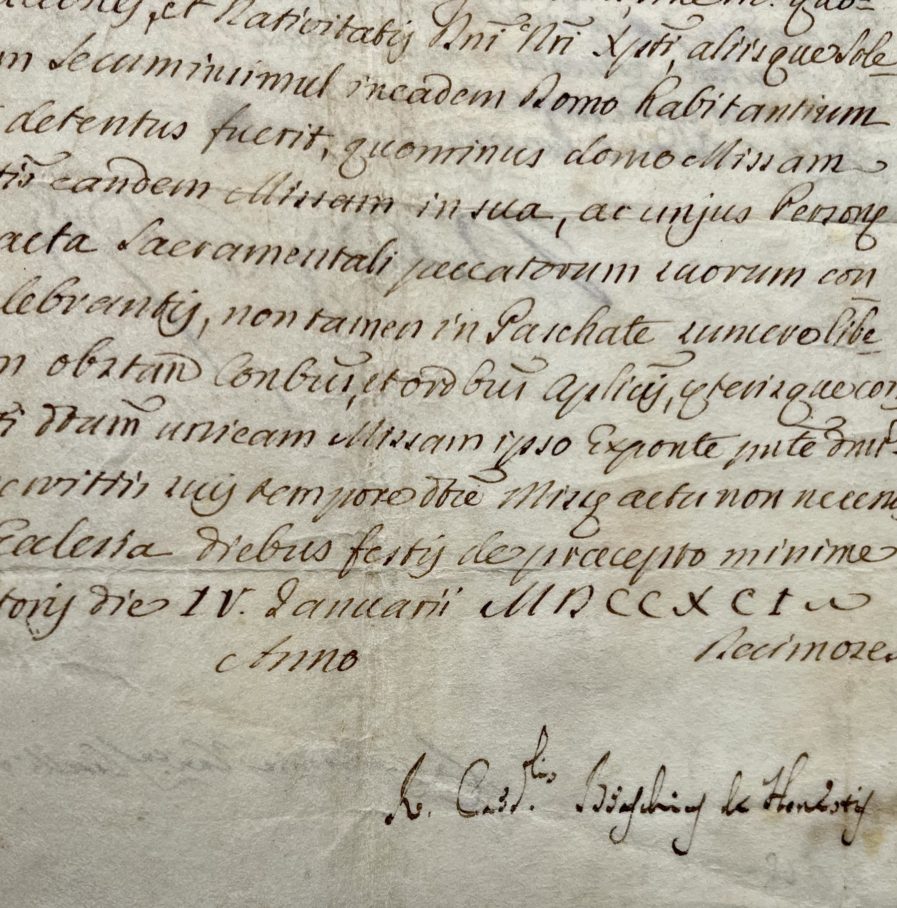 et Nativitatis Dnĩ Nrĩ Xptĩ, aliisque Sole=
m Secum insimul in eadem Domo habitantium
detentus fuerit, quominus domo Missam
tis eandem Missam in sua, ac unius Personę
acta Sacramentali peccatorum suorum con
lebrantis, non tamen in Paschate sumere libe=
n obstañ Conbũs, et ordbũs Aplicis, cęterisque con
dtam̃ unicam Missam ipso Exponte pñte
suis tempore dtæ̃ Missę actu non necens
Ecclesia diebus festis de præcepto minime
toris die IV. Januarii MDCCXCI
Anno Decimosex
R. Cardlis Braschius de Honestis